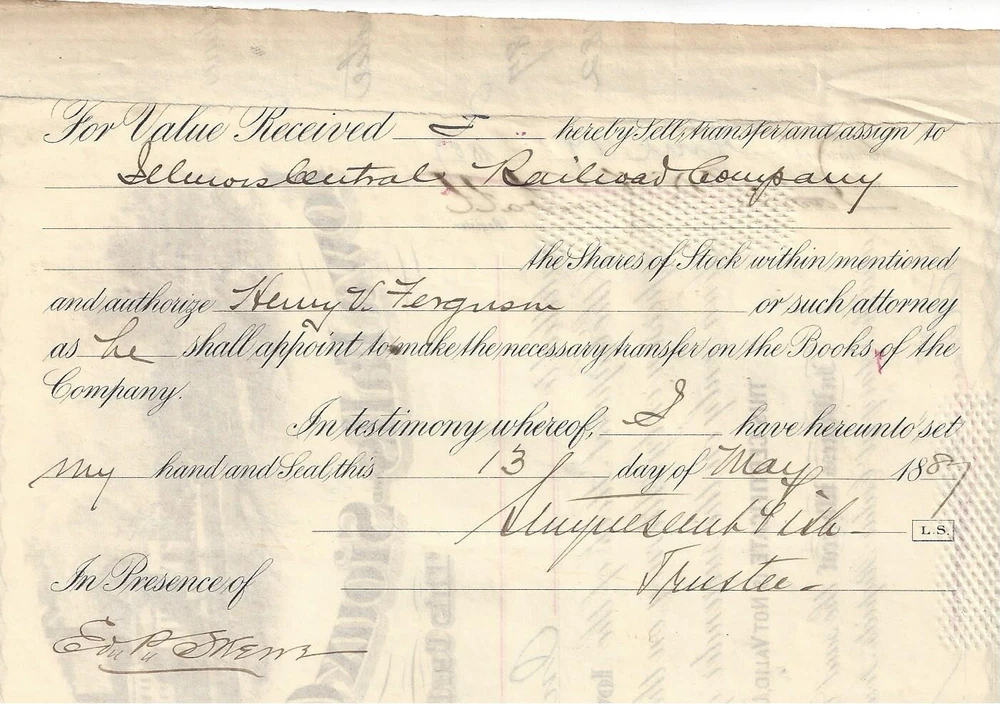 For Value Received I hereby Sell, transfer and assign to
Illinois Central Railroad Company
the Shares of Stock within mentioned
and authorize Henry V. Ferguson or such attorney
as he shall appoint to make the necessary transfer on the Books of the
Company.
In testimony whereof, I have hereunto set
my hand and Seal, this 13 day of May 1887
Stuyvesant Fish L.S.
Trustee
In Presence of